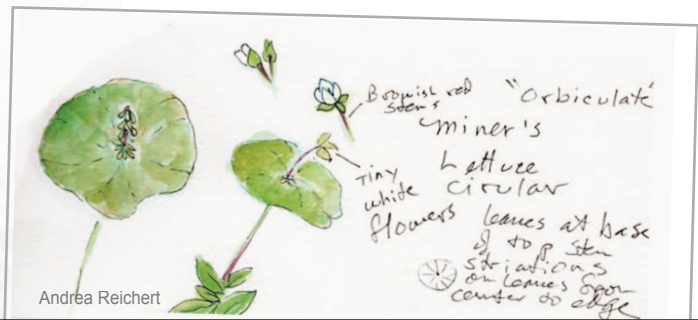 Brownish red
stems
"Orbiculate"
miner's
Lettuce
Tiny
white
flowers
circular
leaves at base
of top stem
striations
on leaves from
center to edge
Andrea Reichert